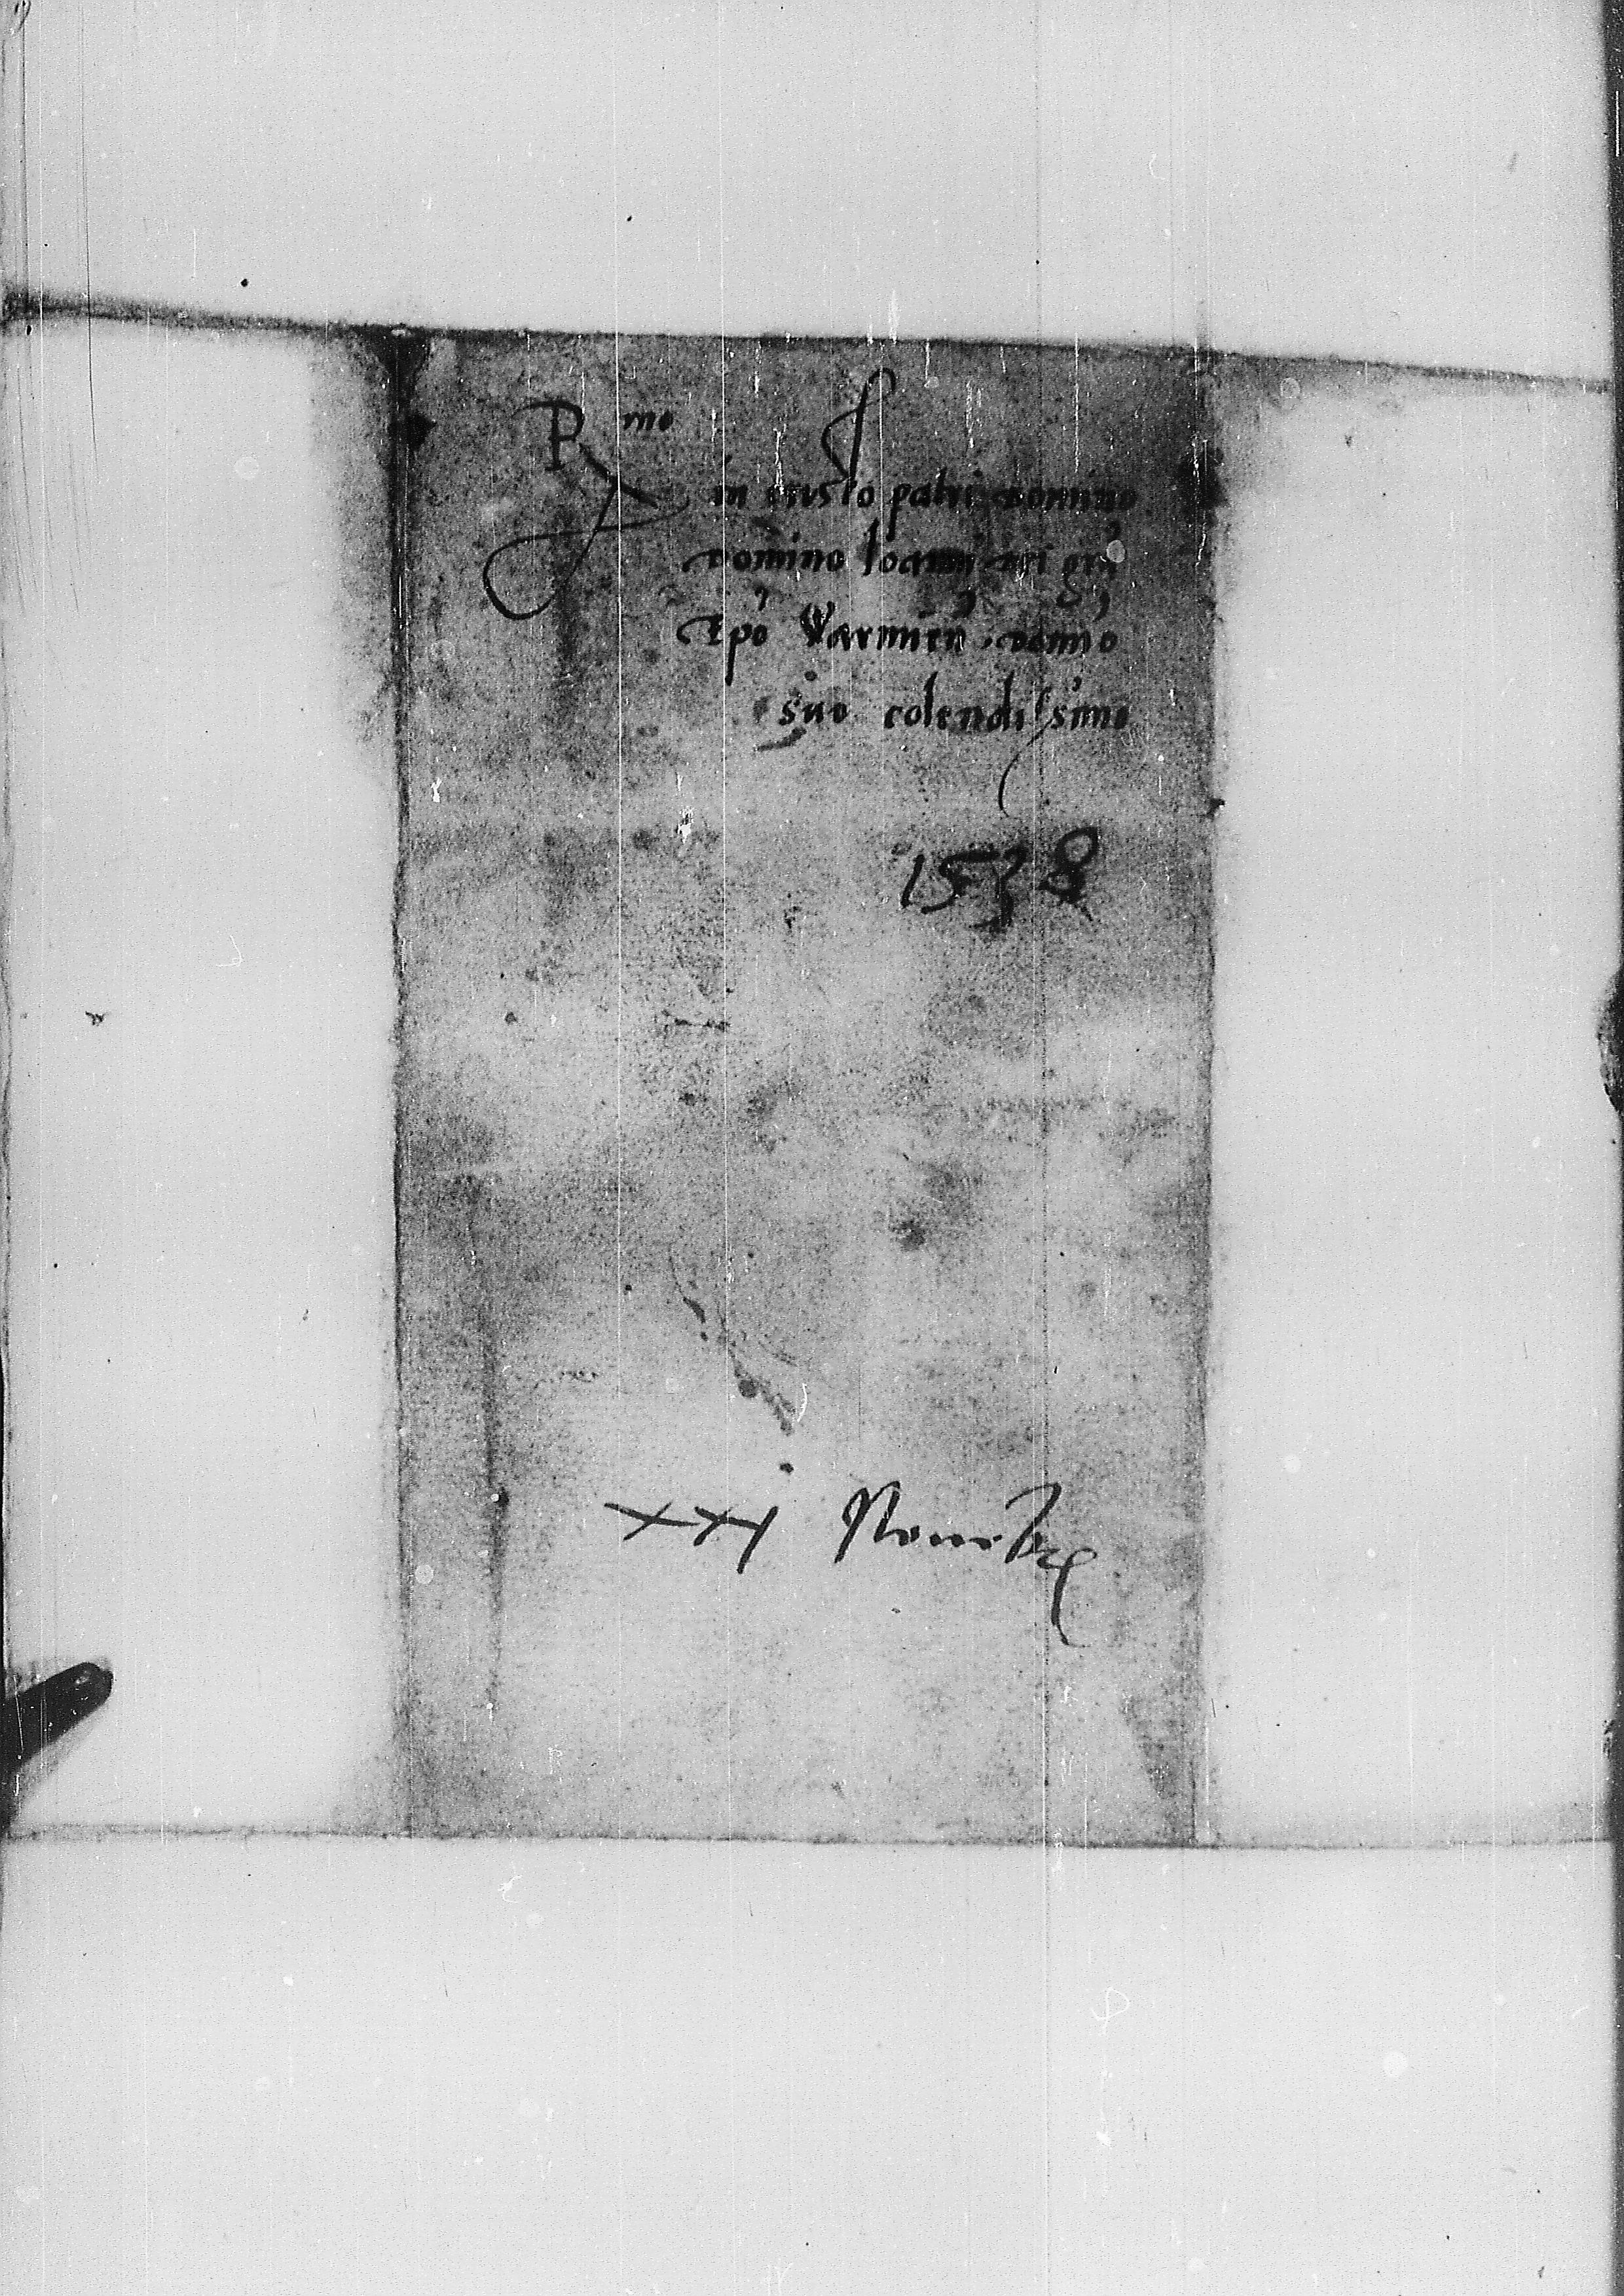 R mo
in Cristo patri domino
domino Ioanni dei gra
Epo Warmien. domino
suo colendissimo
1538
XXI Novembr